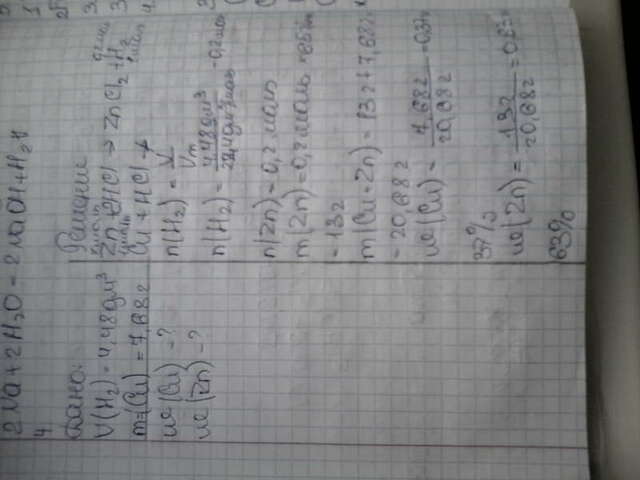 2Na + 2H₂O = 2NaOH + H₂↑
4
Дано:
V(H₂) = 4,48 дм³
m(Cu) = 7,68 г
ω(Cu) - ?
ω(Zn) - ?
Решение
Zn + 2HCl → ZnCl₂ + H₂
Cu + HCl ↛
n(H₂) = V / Vm
n(H₂) = 4,48 дм³ / 22,4 дм³/моль = 0,2 моль
n(Zn) = 0,2 моль
m(Zn) = 0,2 моль ×
= 13 г
m(Cu + Zn) = 13 г + 7,68 г
= 20,68 г
ω(Cu) = 7,68 г / 20,68 г = 0,37
37%
ω(Zn) = 13 г / 20,68 г = 0,63
63%